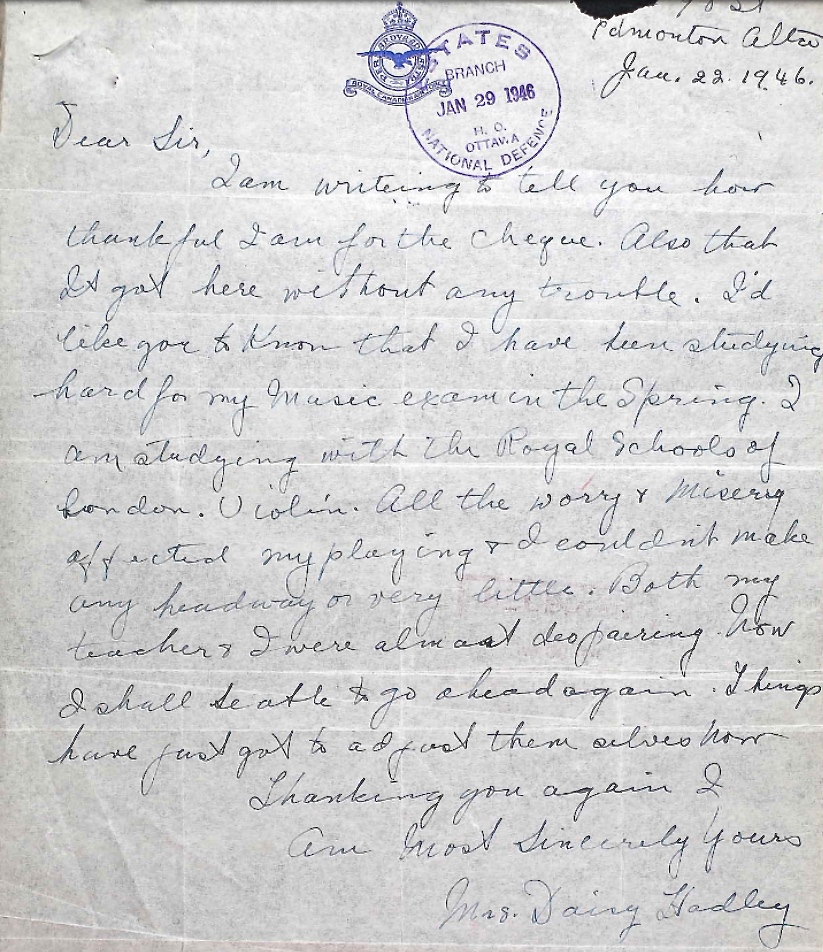 Edmonton Alta
Jan. 22. 1946.
PER ARDVA AD ASTRA
ROYAL CANADIAN AIR FORCE
STATES
BRANCH
JAN 29 1946
H. Q.
OTTAWA
NATIONAL DEFENCE
Dear Sir,
I am writeing to tell you how
thankful I am for the cheque. Also that
It got here without any trouble. I'd
like you to Know that I have been studying
hard for my Music exam in the Spring. I
am studying with the Royal Schools of
London. Violin. All the worry & Misery
affected my playing & I couldn't make
any headway or very little. Both my
teacher & I were almost despairing. Now
I shall be able to go ahead again. Things
have just got to adjust them selves now
Thanking you again I
Am Most Sincerely Yours
Mrs. Daisy Hadley